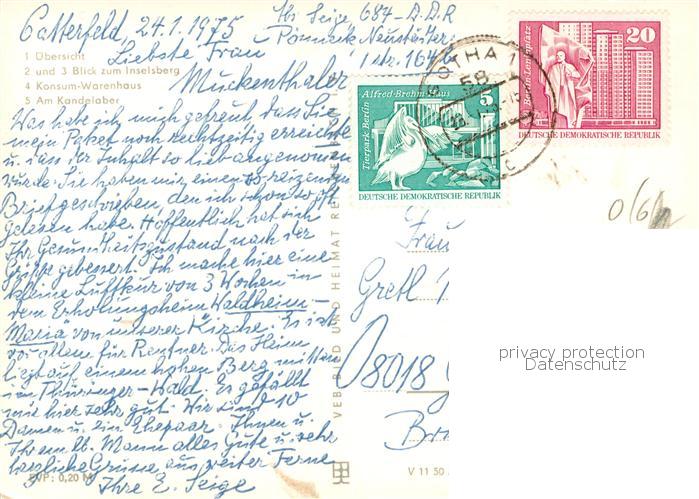 Catterfeld, 24.1.1975
Abs. Seige, 684 - D.D.R
Pössneck Neustädter-
1 Übersicht
2 und 3 Blick zum Inselsberg
4 Konsum-Warenhaus
5 Am Kandelaber
Liebste Frau
Muckenthaler
Was habe ich mich gefreut das Sie
mein Paket noch rechtzeitig erreichte
u. dass der Inhalt so lieb angenommen
wurde. Sie haben mir einen so reizenden
Brief geschrieben, den ich schon so oft
gelesen habe. Hoffentlich hat sich
Ihr Gesundheitszustand nach der
Grippe gebessert. Ich mache hier eine
kleine Luftkur von 3 Wochen in
dem Erholungsheim Waldheim-
Maria von unserer Kirche. Es ist
vor allem für Rentner. Das Heim
liegt auf einem hohen Berg mitten
im Thüringer-Wald. Es gefällt
mir hier sehr gut. Wir sind 10
Damen u. ein Ehepaar. Ihnen u.
Ihrem lb. Mann alles Gute u. sehr
herzliche Grüsse aus weiter Ferne
Ihre E. Seige
EVP: 0,20 M
VEB BILD UND HEIMAT
V 11 50
GOTHA 1
58
Tierpark Berlin
Alfred-Brehm-Haus
5
DEUTSCHE DEMOKRATISCHE REPUBLIK
Berlin-Leninplatz
20
DEUTSCHE DEMOKRATISCHE REPUBLIK
Frau
Gretl
D8018
privacy protection
Datenschutz